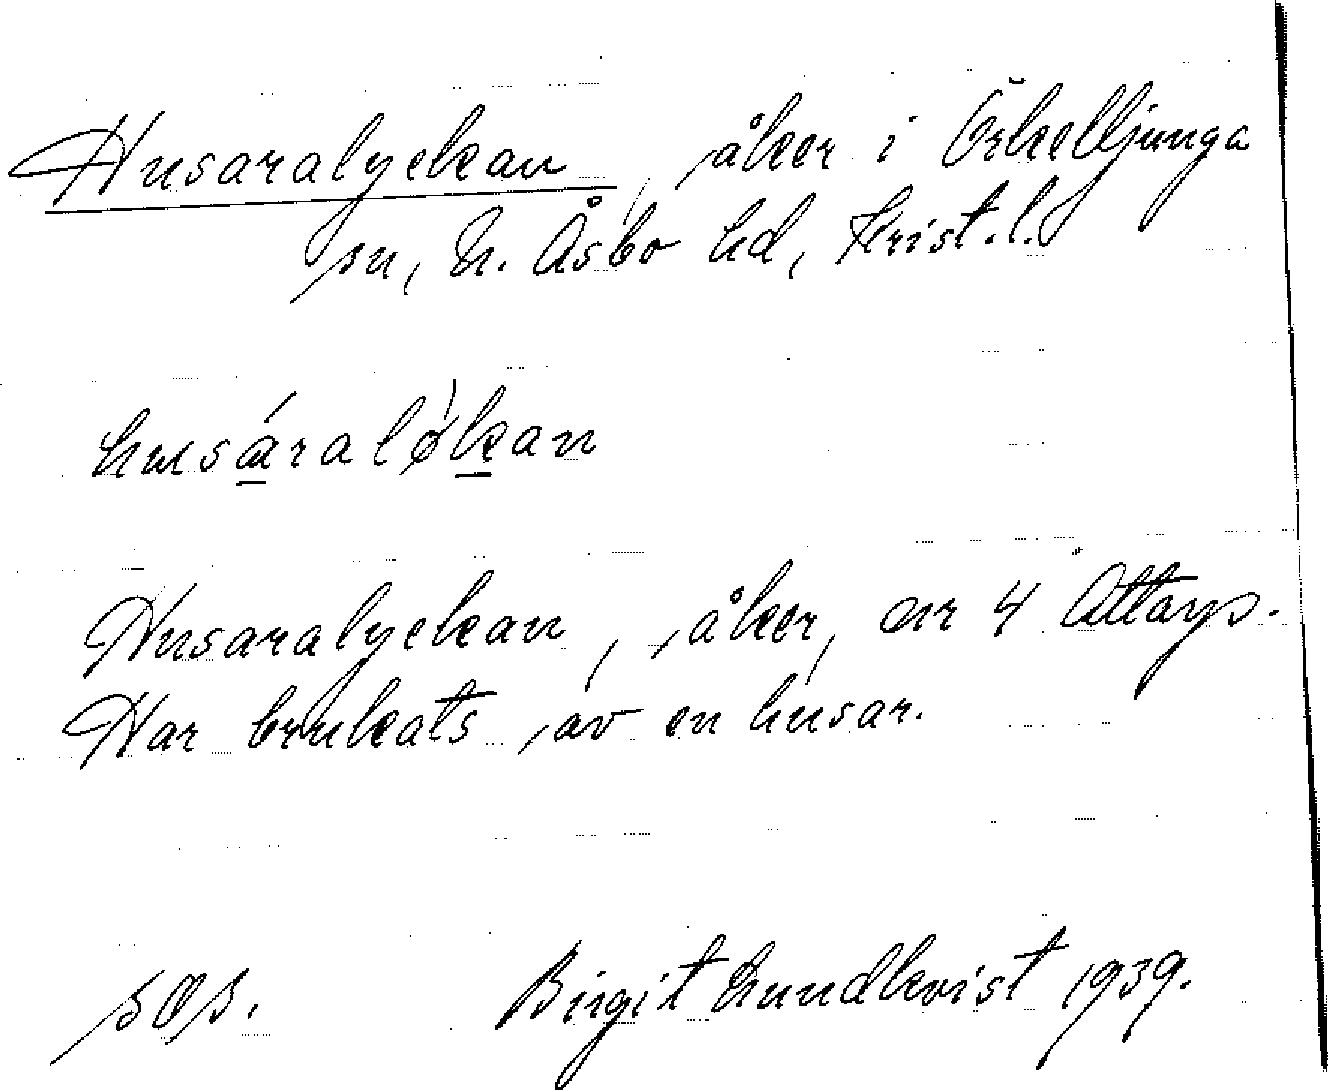 Husaralyckan, åker i Örkelljunga
sn, N. Åsbo hd, Krist. l.
husáraløkan
Husaralyckan, åker, nr 4 Attarp.
Har brukats av en husar.
sOs. Birgit Lundkvist 1939.